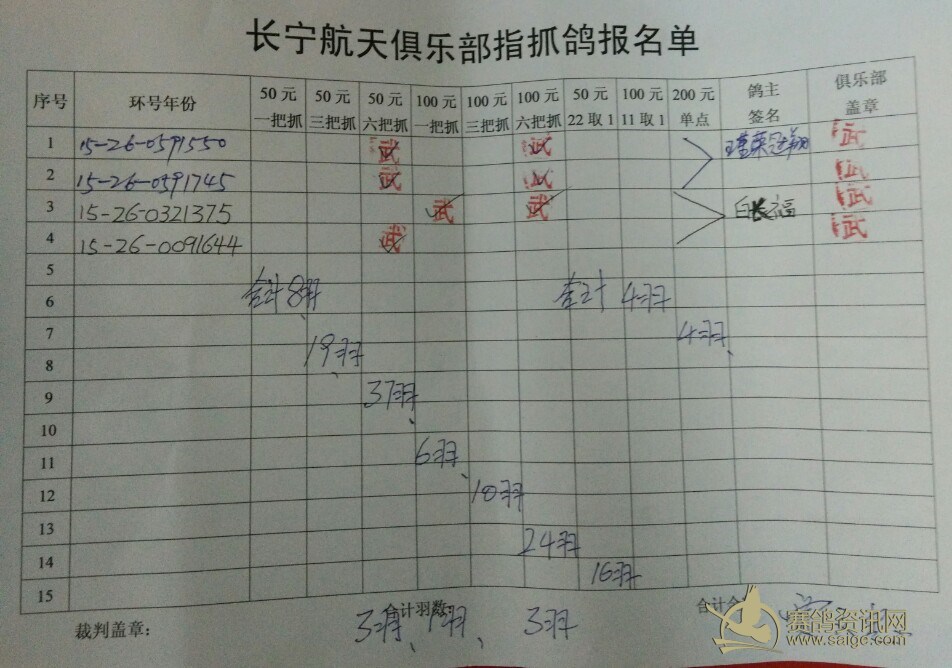 长宁航天俱乐部指抓鸽报名单
序号 环号年份 50元一把抓 50元三把抓 50元六把抓 100元一把抓 100元三把抓 100元六把抓 50元22取1 100元11取1 200元单点 鸽主签名 俱乐部盖章
1 15-26-0591550 武 武 武
2 15-26-0591745 武 武 武
3 15-26-0321375 武 武 白长福 武
4 15-26-0091644 武 武
5
6 合计8羽 合计 4羽
7 4羽
8 19羽
9 37羽
10
11 6羽
12 10羽
13
14 24羽
15 16羽
裁判盖章: 合计羽数: 3羽、1羽、 3羽 合计金
赛鸽资讯网
www.saigc.com